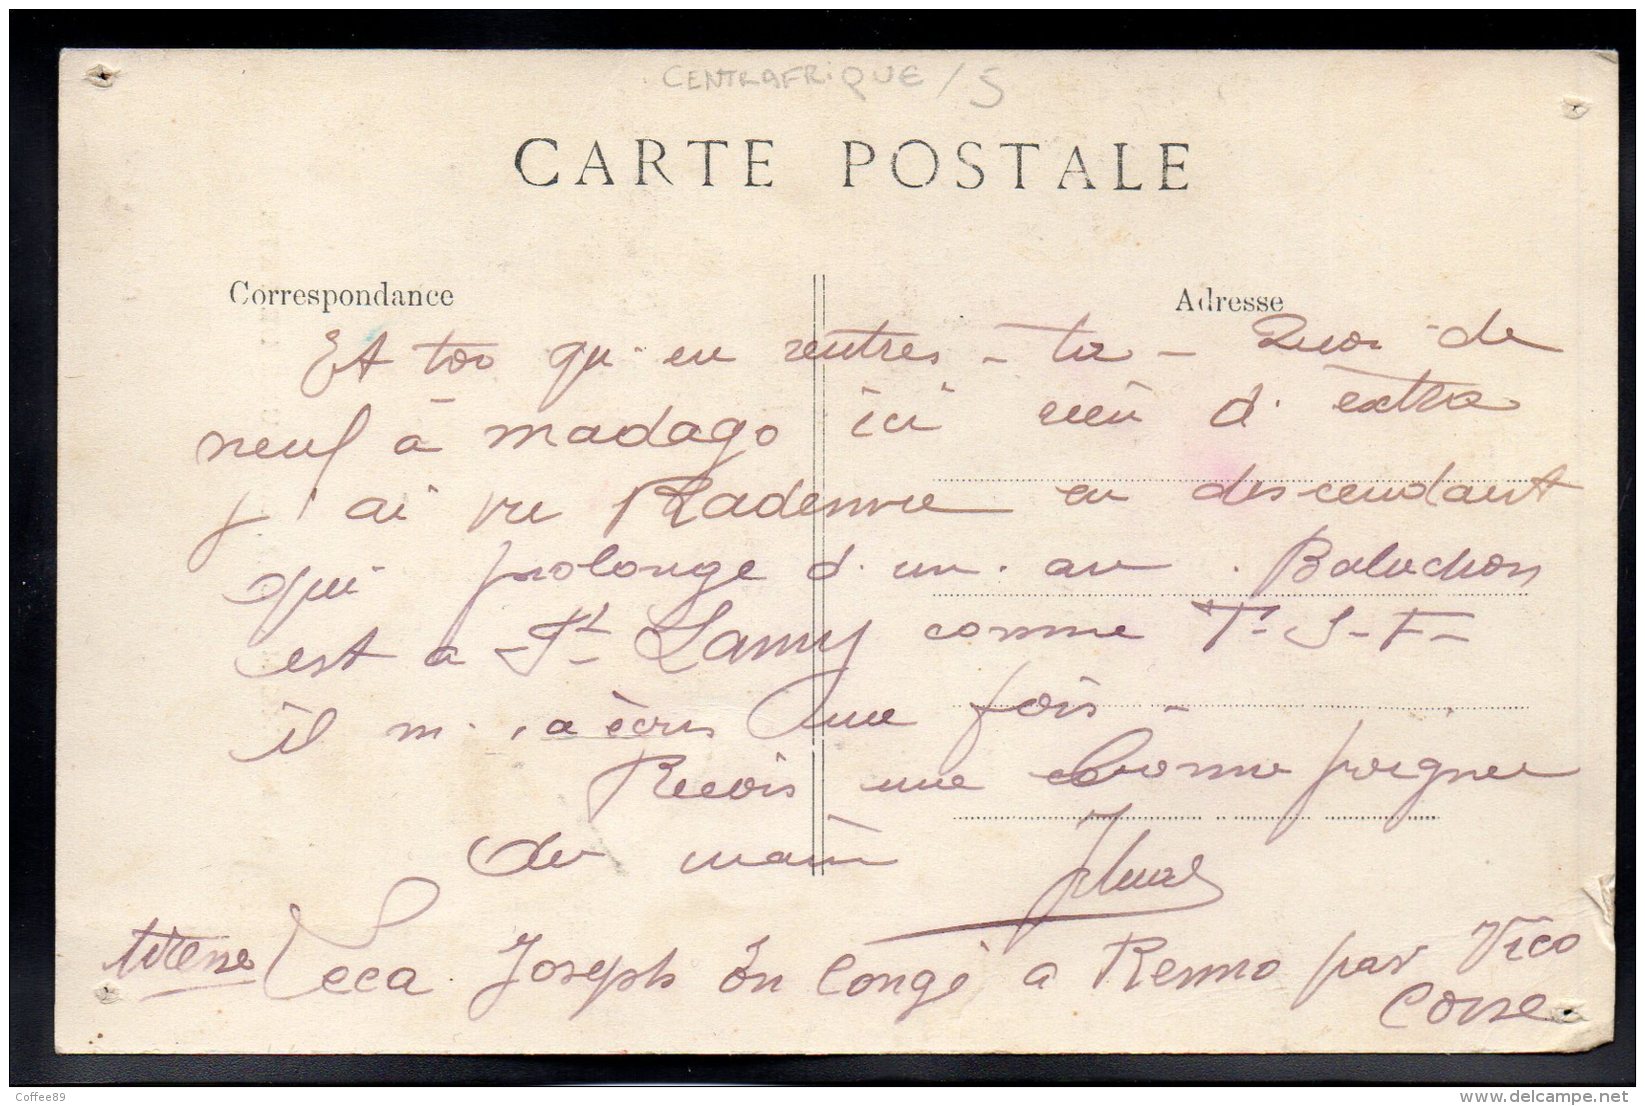 CENTRAFRIQUE / 5
CARTE POSTALE
Correspondance
Adresse
Et toi qu'en rentres-tu - Quoi de
neuf à madago ici rien d'extra
j'ai vu Radenne en descendant
qui prolonge d'un an. Baluchon
est à Ft Lamy comme T.S.F.
il m'a écris une fois -
Recois une bonne poignee
de main
Leca Joseph En Congé a Renno par Vico
Corse
Coffee89
www.delcampe.net